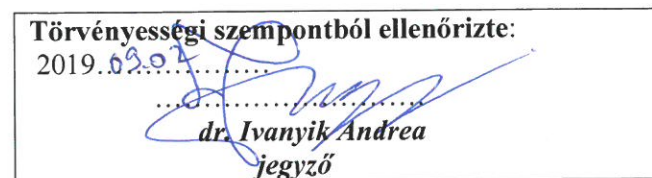 Törvényességi szempontból ellenőrizte:
2019.09.02
dr. Ivanyik Andrea
jegyző